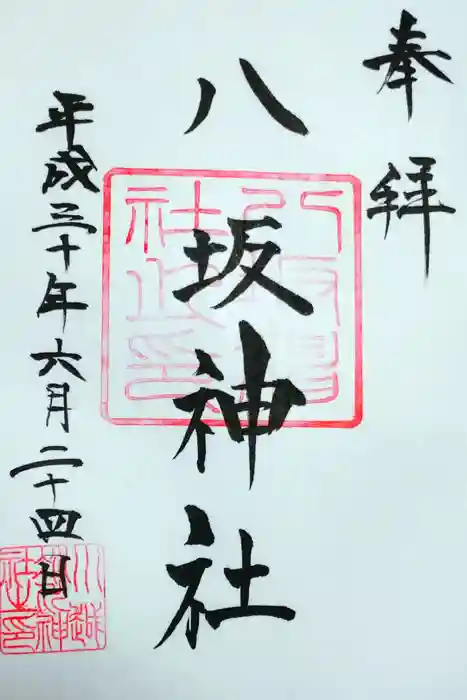 奉拝
八坂神社
平成三十年六月二十四日
川越